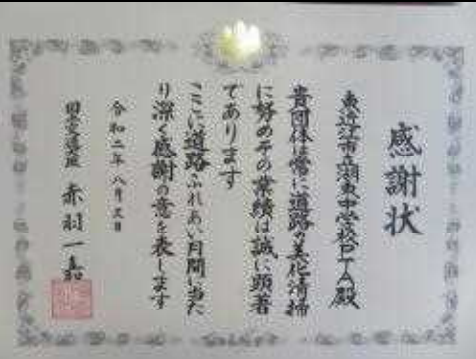 感謝状
東近江市立湖東中学校PTA殿
貴団体は常に道路の美化清掃
に努めその業績は誠に顕著
であります
ここに道路ふれあい月間に当た
り深く感謝の意を表します
令和二年 八月
国土交通大臣 赤羽一嘉